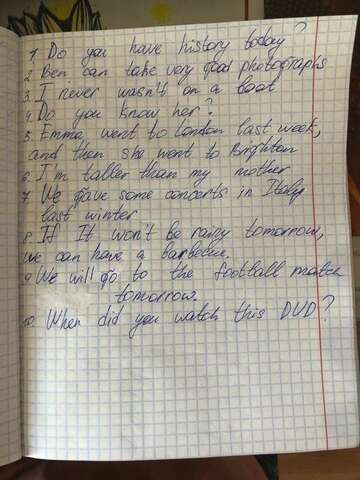 1. Do you have history today?
2. Ben can take very good photographs
3. I never wasn't on a boat
4. Do you know her?
5. Emma went to London last week,
and then she went to Brighton
6. I'm taller than my mother
7. We gave some concerts in Italy
last winter
8. If It won't be rainy tomorrow,
we can have a barbecue.
9. We will go to the football match
tomorrow.
10. When did you watch this DVD?